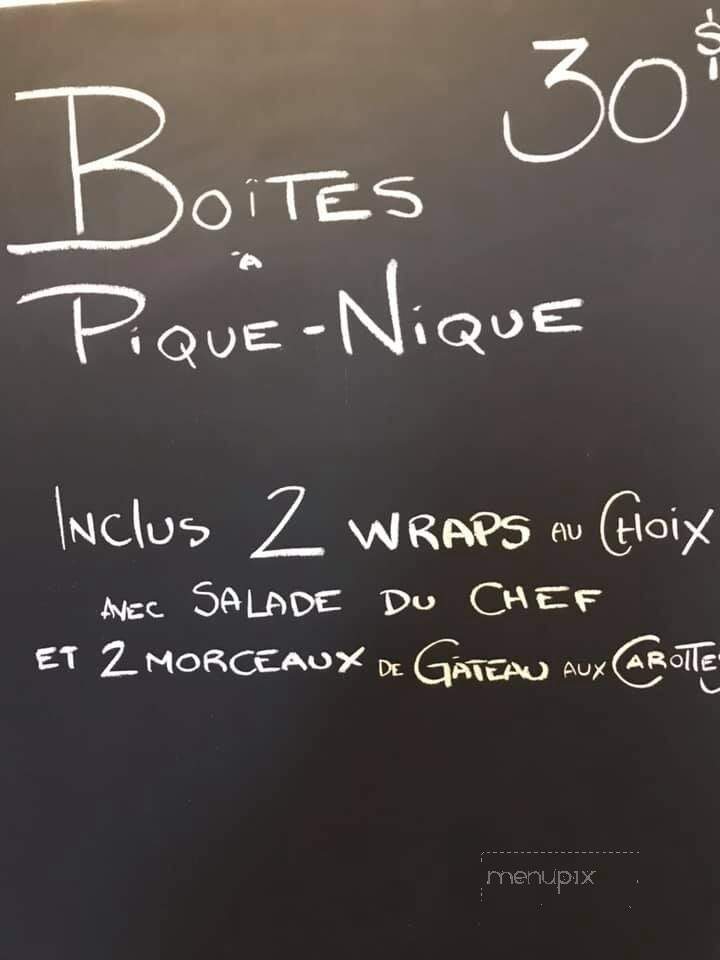 BOîTES 30$
à
PiQUE-NiQUE
INCLUS 2 WRAPS AU CHOIX
AVEC SALADE DU CHEF
ET 2 MORCEAUX DE GÂTEAU AUX CAROTTES
menupix